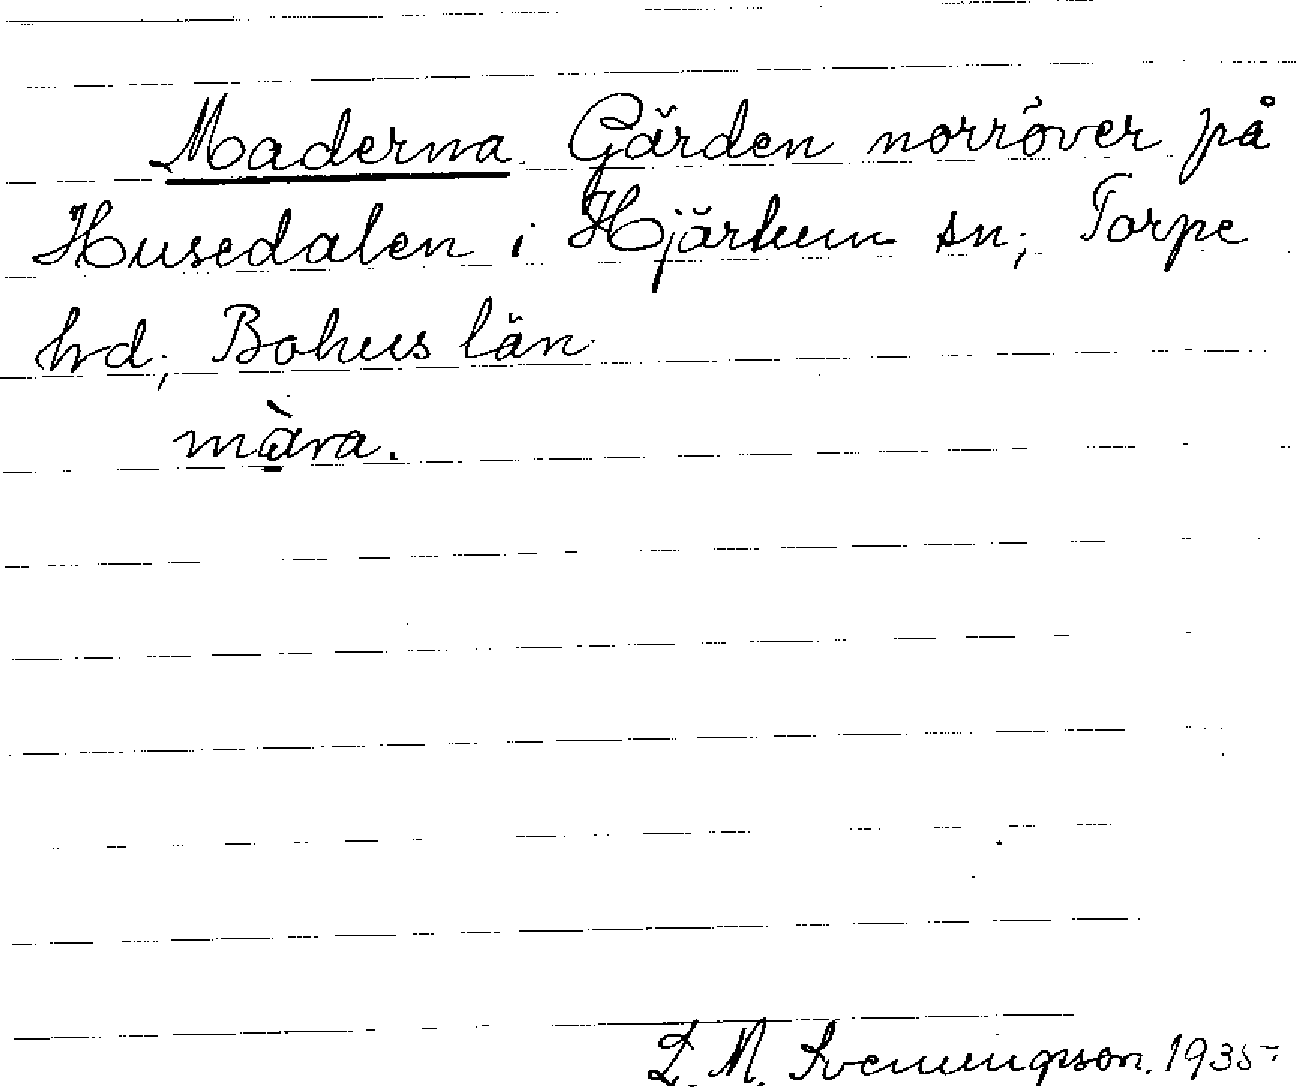 Maderna. Gärden norröver på
Husedalen i Hjärtum sn; Torpe
hd; Bohus län
màra.
L. M. Svenungsson. 1935